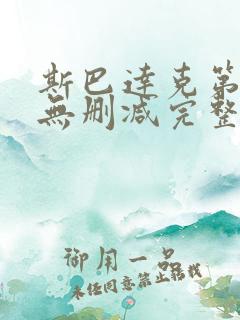 斯巴達克第
無删減完整
御用一品
未经同意禁止转载